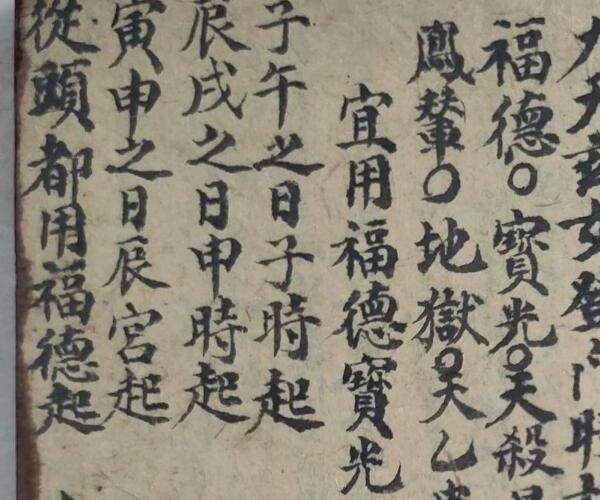 九天玄女登門時
福德○寶光○天殺
鳳輦○地獄○天乙
宜用福德寶光
子午之日子時起
辰戌之日申時起
寅申之日辰宮起
從頭都用福德起